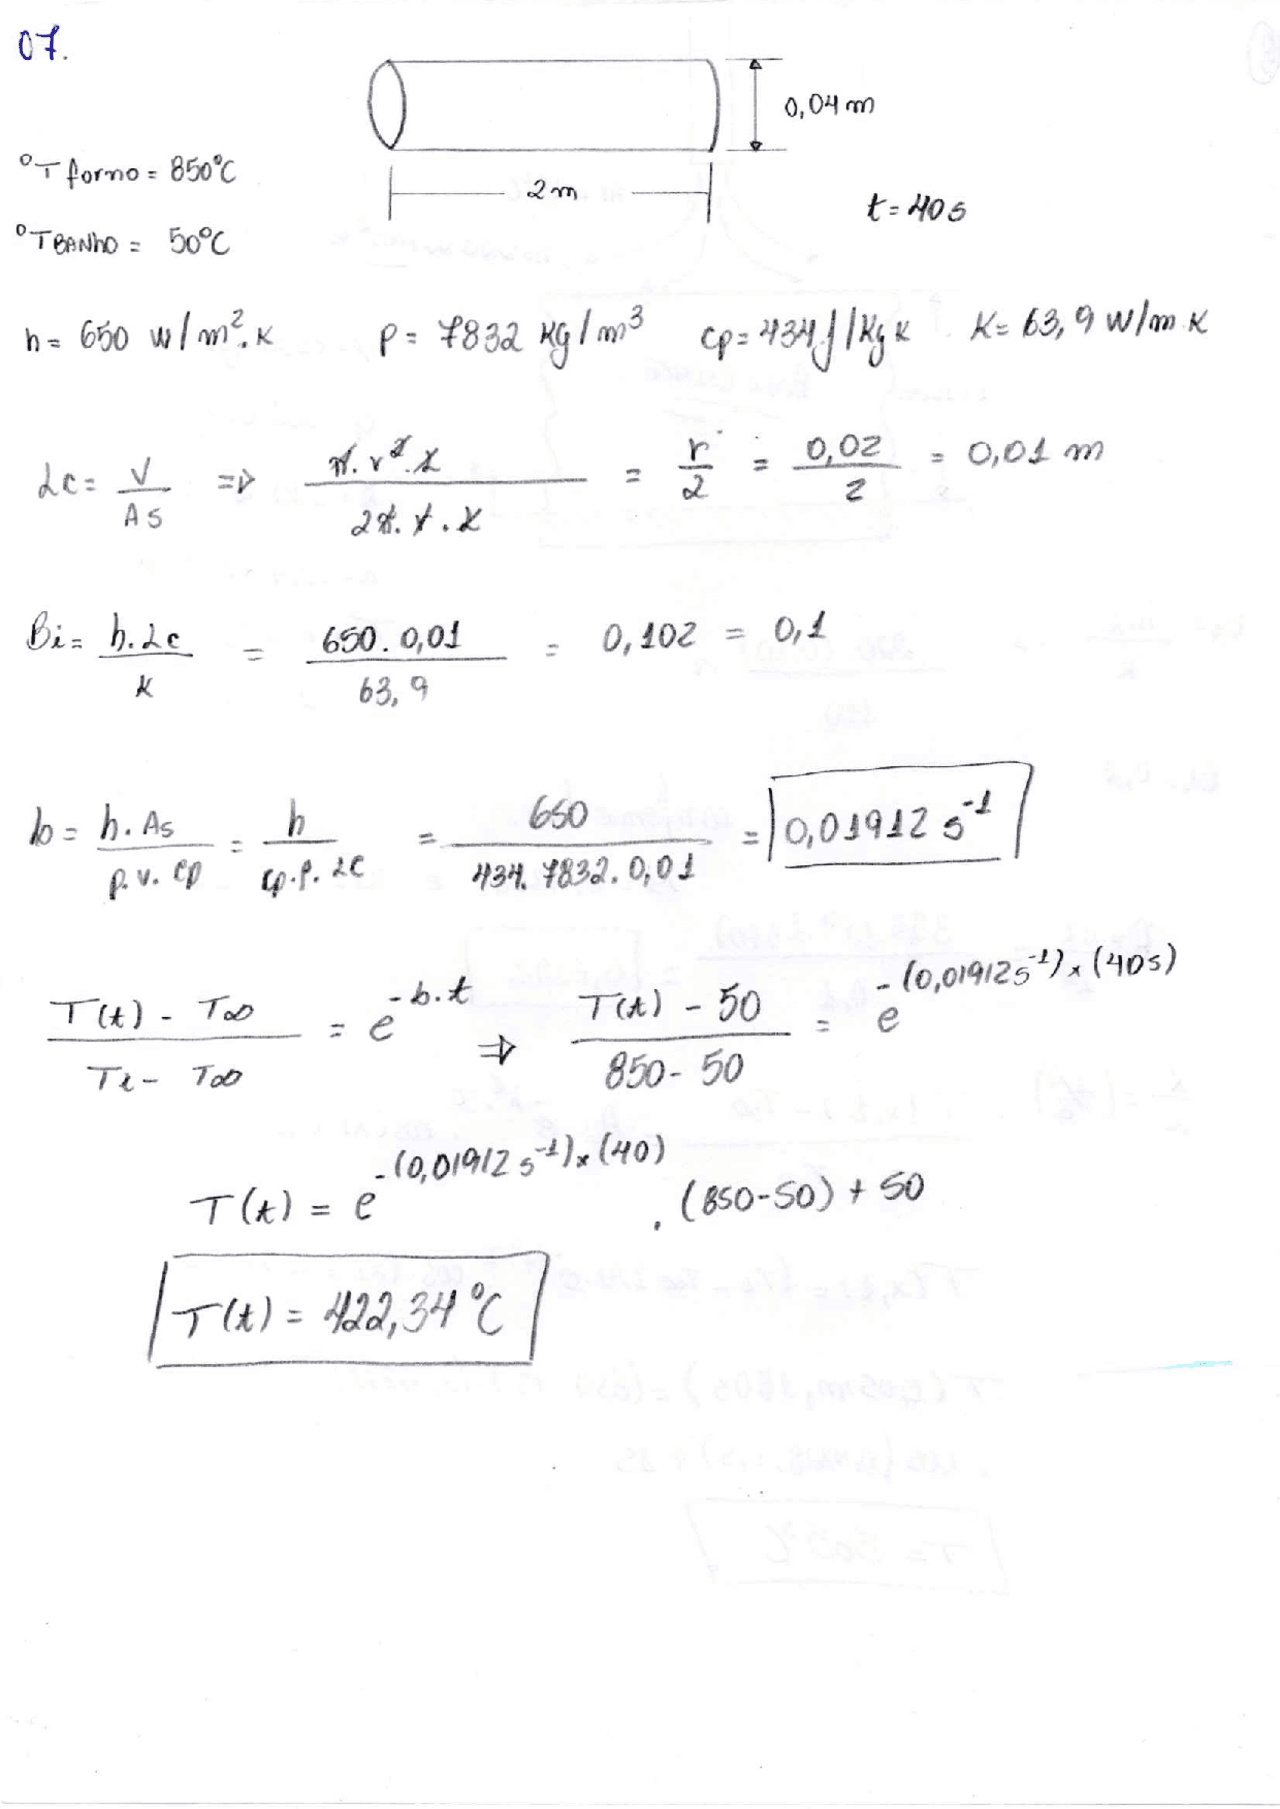 07.
0,04 m
°T forno = 850°C
2 m
t = 40 s
°T BANHO = 50°C
h = 650 w/m².K ρ = 7832 Kg/m³ cp = 434 J/Kg K K = 63,9 W/m.K
Lc = V/As => π.r².L / 2π.r.L = r/2 = 0,02/2 = 0,01 m
Bi = h.Lc/K = 650.0,01/63,9 = 0,102 = 0,1
b = h.As/ρ.v.cp = h/cp.ρ.Lc = 650/434.7832.0,01 = 0,01912 s⁻¹
T(t) - T∞ / Ti - T∞ = e^-b.t => T(t) - 50 / 850 - 50 = e^-(0,01912 s⁻¹)x(40s)
T(t) = e^-(0,01912 s⁻¹)x(40) . (850-50) + 50
T(t) = 422,34 °C